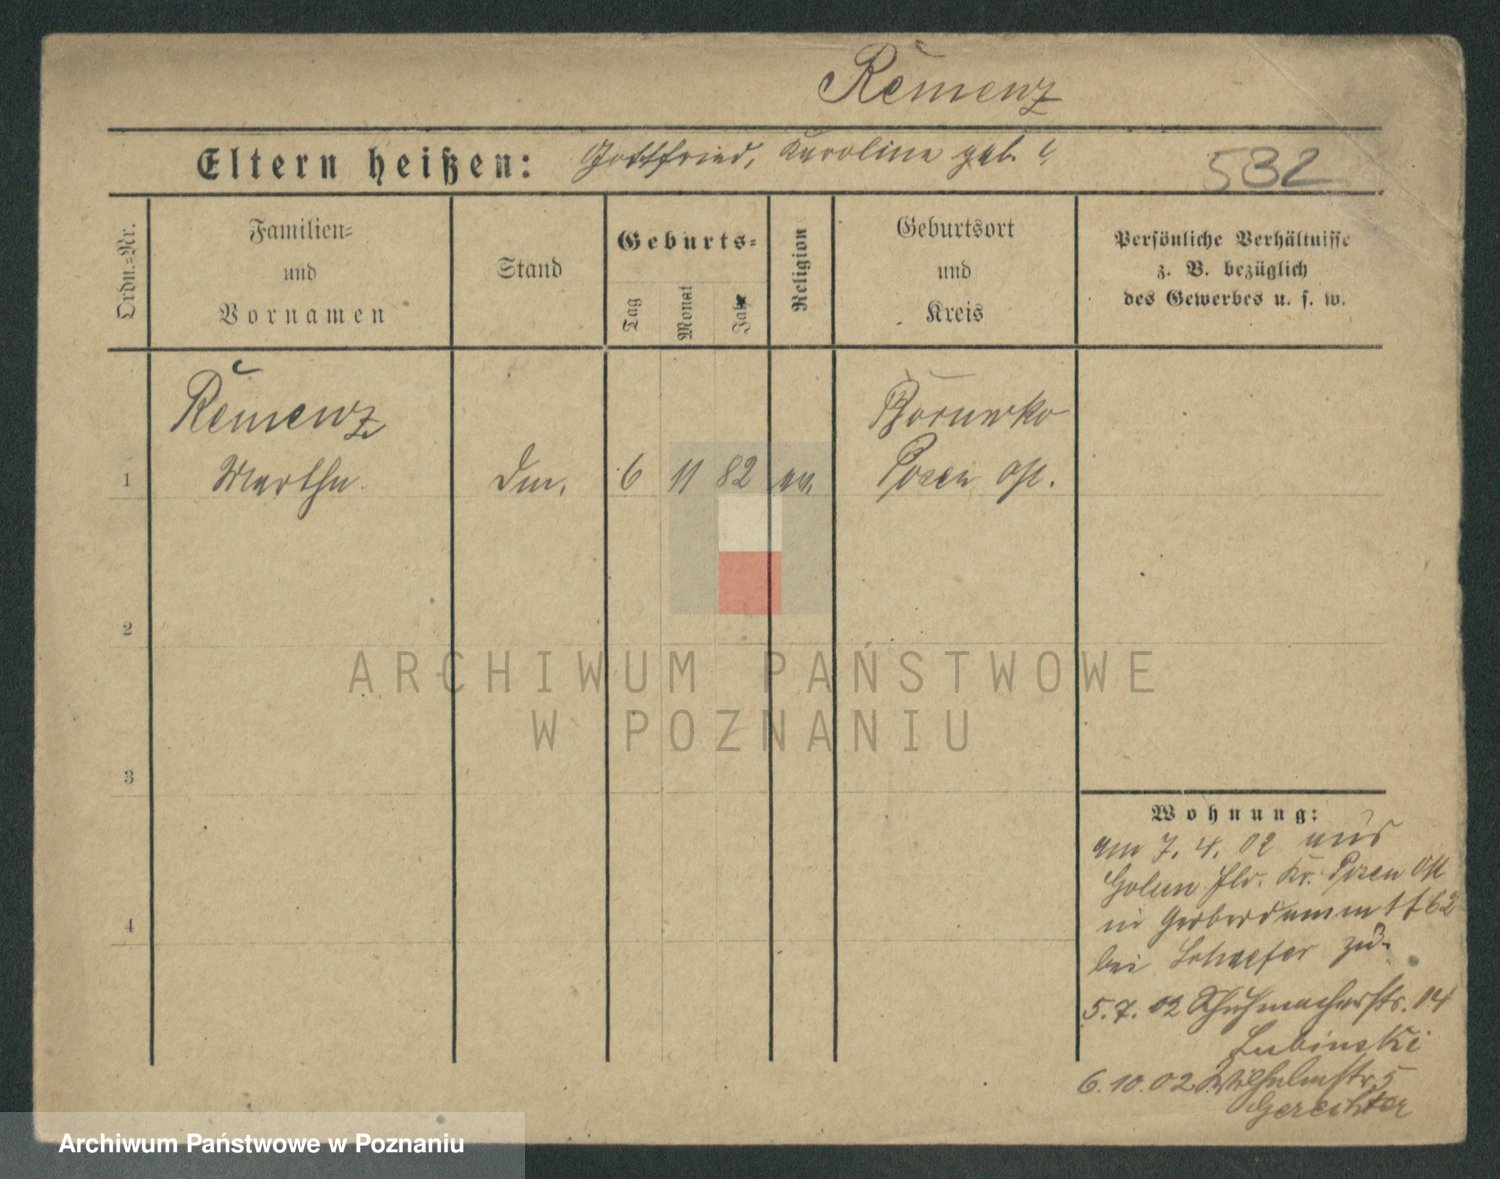 Remenz
Eltern heißen: Gottfried, Karoline geb. ?
532
Ordn.-Nr.
Familien-
und
Vornamen
Stand
Geburts-
Tag
Monat
Jahr
Religion
Geburtsort
und
Kreis
Persönliche Verhältnisse
z. B. bezüglich
des Gewerbes u. s. w.
Remenz
1 Martha. 6 11 82 ev.
Borowko
Posen Ost.
2
3
4
Wohnung:
am 7. 4. 02 aus
Kr. Posen Ost
in Gerberdamm
bei Schaefer zu-
5. 7. 02 Schuhmacherstr. 14
Lubinski
6. 10. 02 Wilhelmstr. 5
Gerechter
ARCHIWUM PAŃSTWOWE
W POZNANIU
Archiwum Państwowe w Poznaniu